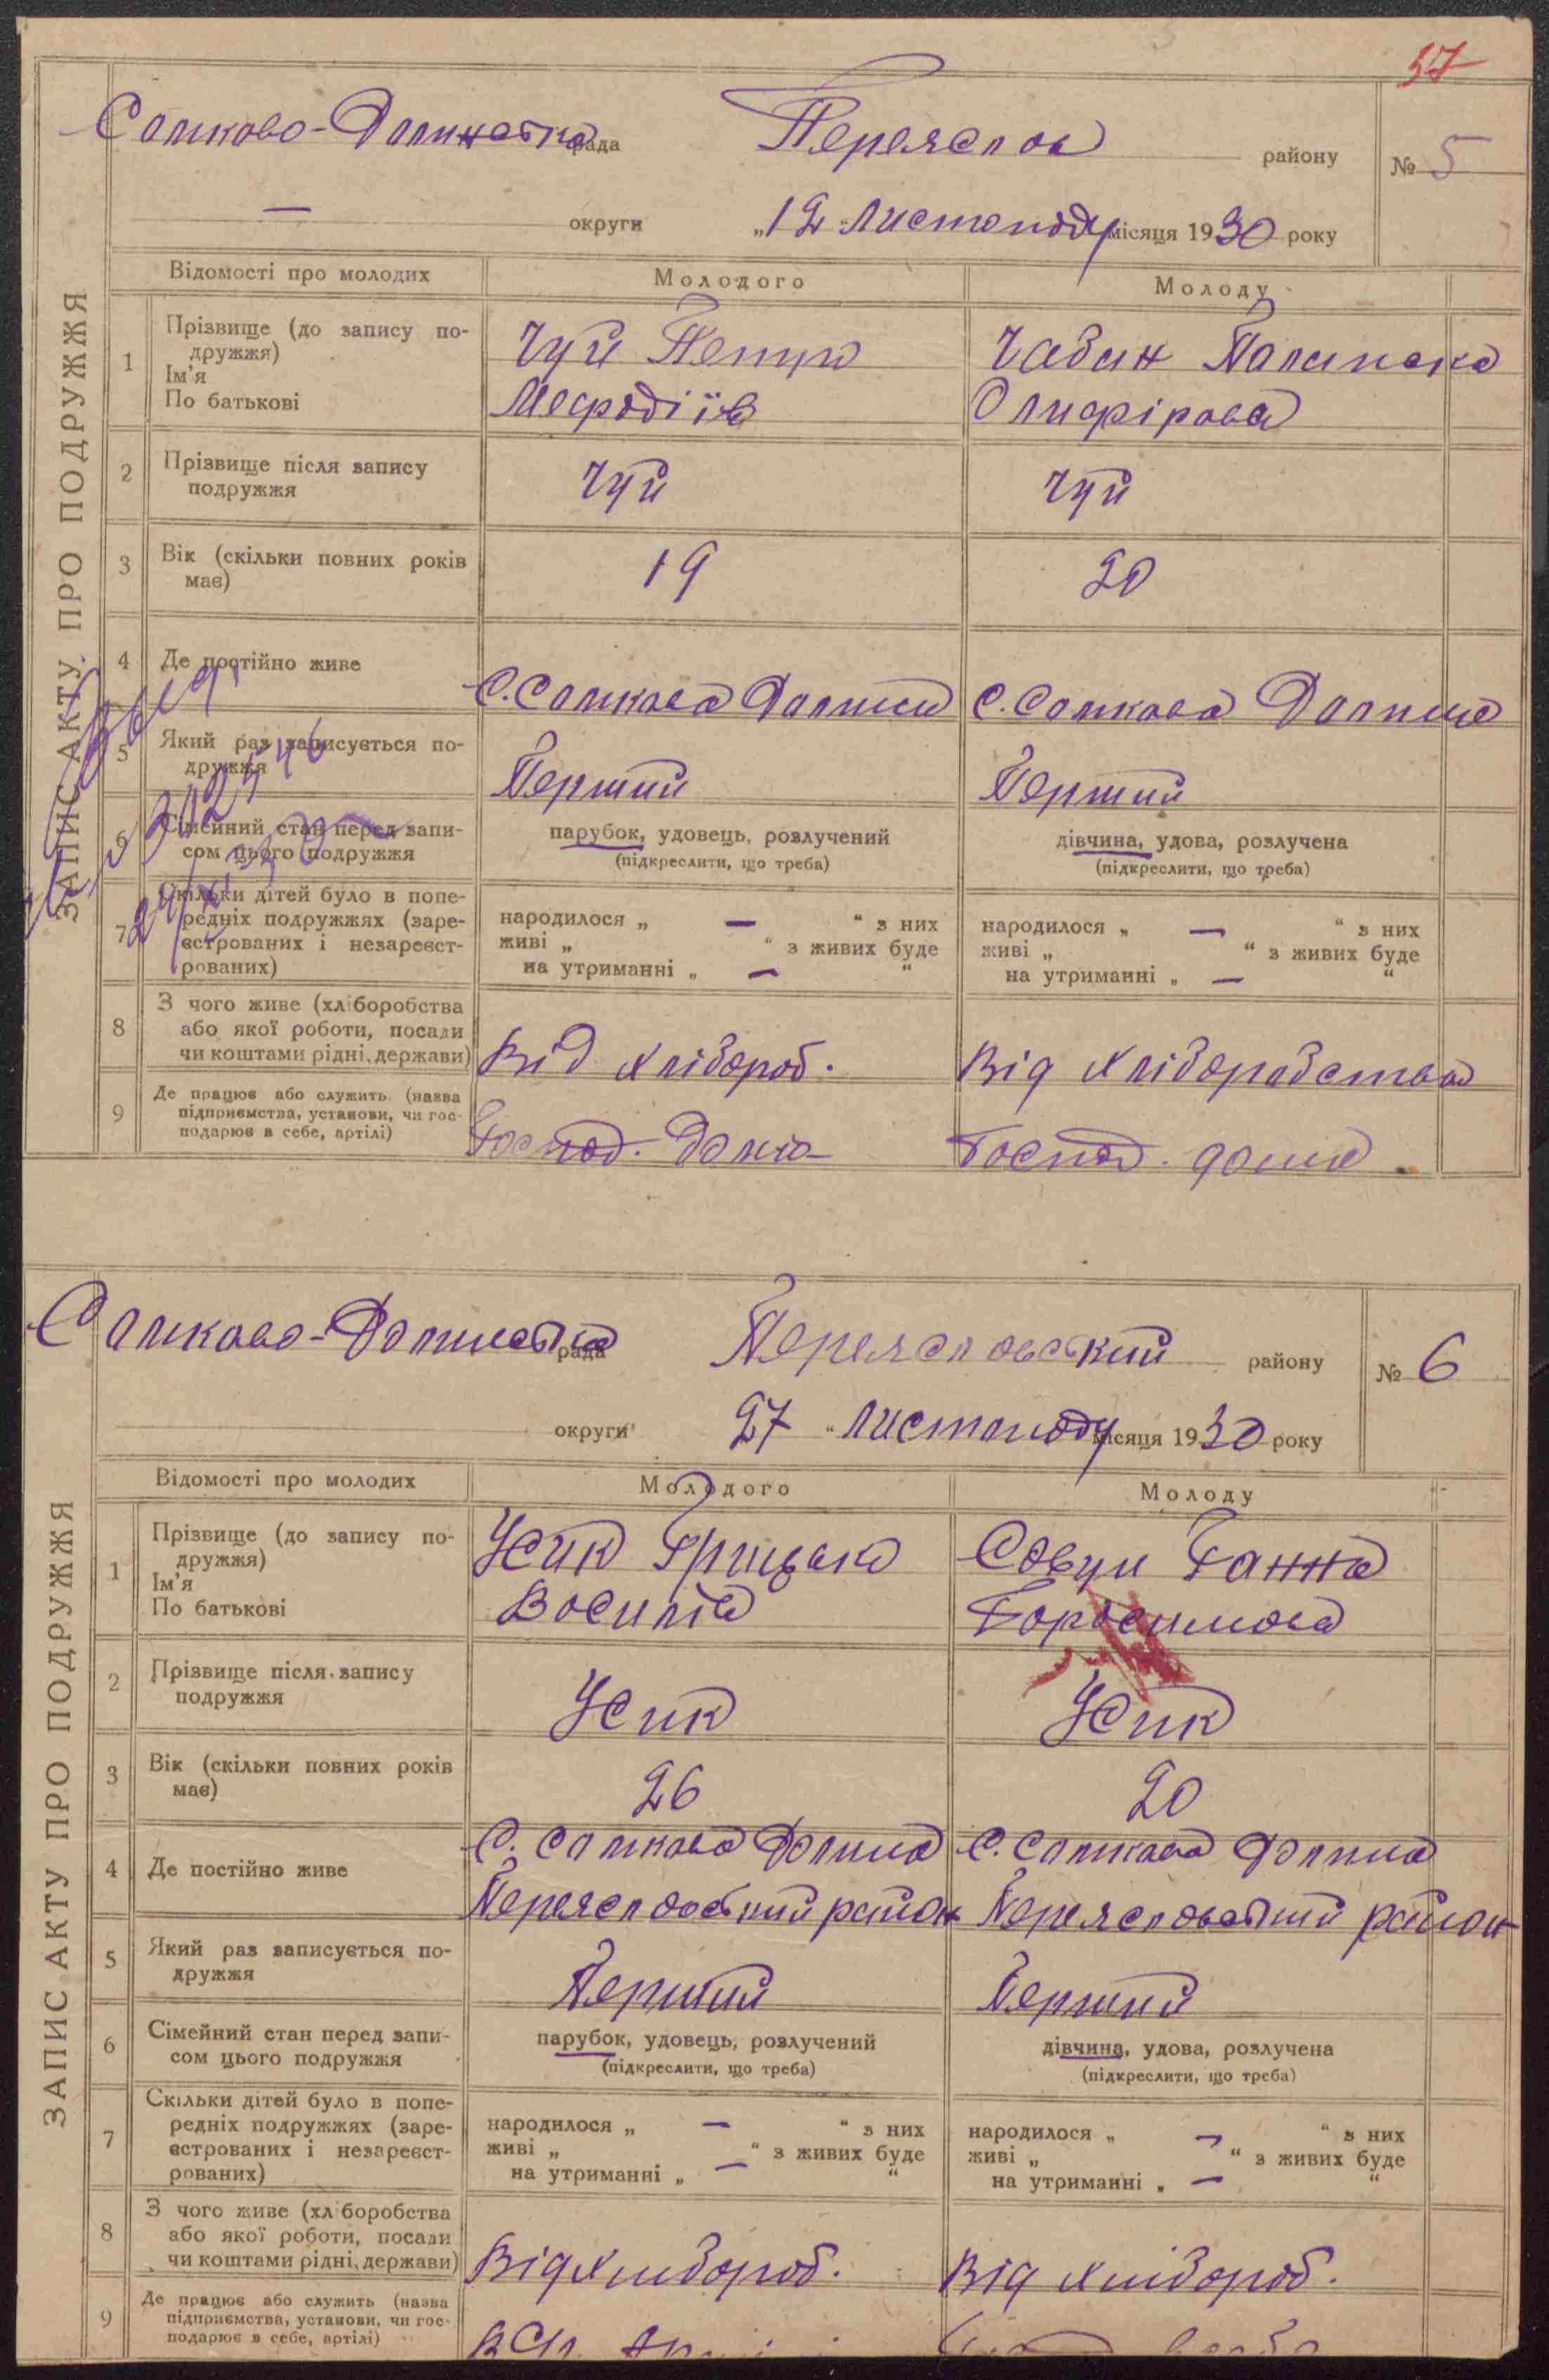 37
Сомково-Долинська рада Переяслов району № 5
— округи „12“ Листопаду місяця 1930 року
ЗАПИС АКТУ ПРО ПОДРУЖЖЯ
Відомості про молодих Молодого Молоду
1 Прізвище (до запису подружжя)
Ім'я
По батькові
Чуй Петро
Мефодіїв
Чабан Палажка
Олифірова
2 Прізвище після запису
подружжя
Чуй Чуй
3 Вік (скільки повних років
має)
19 20
4 Де постійно живе
С. Сомкова Долина С. Сомкова Долина
5 Який раз записується по-
дружжя
Перший Перший
6 Сімейний стан перед запи-
сом цього подружжя
парубок, удовець, розлучений
(підкреслити, що треба)
дівчина, удова, розлучена
(підкреслити, що треба)
7 Скільки дітей було в попе-
редніх подружжях (заре-
єстрованих і незареєст-
рованих)
народилося „ — “ з них
живі „ “ з живих буде
на утриманні „ — “
народилося „ — “ з них
живі „ “ з живих буде
на утриманні „ — “
8 З чого живе (хліборобства
або якої роботи, посади
чи коштами рідні, держави)
Від хлібороб. Від хліборобства
9 Де працює або служить (назва
підприємства, установи, чи гос-
подарює в себе, артілі)
Господ. дома Господ. дома
Сомково-Долинська рада Переясловський району № 6
округи 27 “ Листопаду місяця 1930 року
ЗАПИС АКТУ ПРО ПОДРУЖЖЯ
Відомості про молодих Молодого Молоду
1 Прізвище (до запису по-
дружжя)
Ім'я
По батькові
Усик Грицько
Василів
Совги Ганна
Горосимова
2 Прізвище після запису
подружжя
Усик Усик
3 Вік (скільки повних років
має)
26 20
4 Де постійно живе
С. Сомкова Долина С. Сомкова Долина
Переясловський район Переясловський район
5 Який раз записується по-
дружжя
Перший Перший
6 Сімейний стан перед запи-
сом цього подружжя
парубок, удовець, розлучений
(підкреслити, що треба)
дівчина, удова, розлучена
(підкреслити, що треба)
7 Скільки дітей було в попе-
редніх подружжях (заре-
єстрованих і незареєст-
рованих)
народилося „ — “ з них
живі „ “ з живих буде
на утриманні „ — “
народилося „ — “ з них
живі „ “ з живих буде
на утриманні „ — “
8 З чого живе (хліборобства
або якої роботи, посади
чи коштами рідні, держави)
Від хлібороб. Від хлібороб.
9 Де працює або служить (назва
підприємства, установи, чи гос-
подарює в себе, артілі)